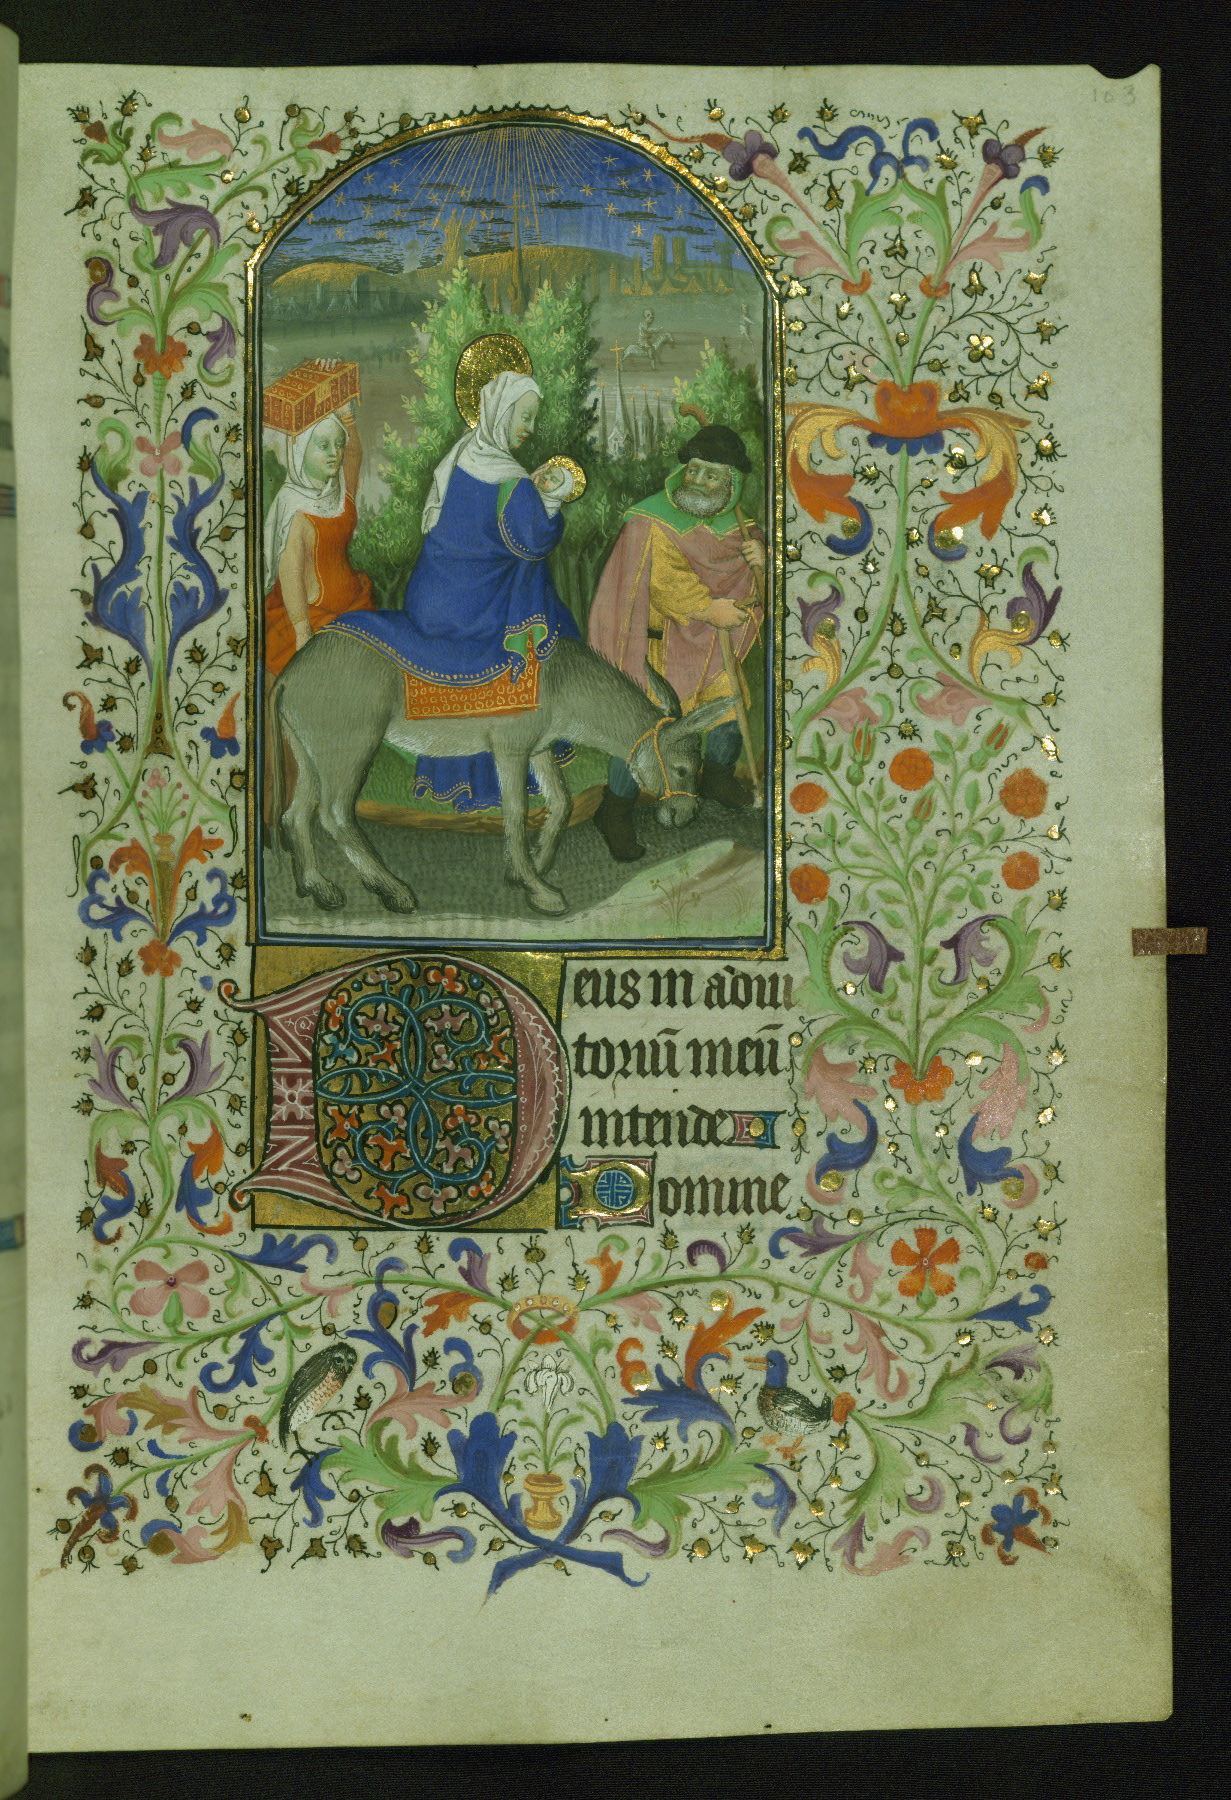 103
Deus in adiu
toriū meū
intende
Domine